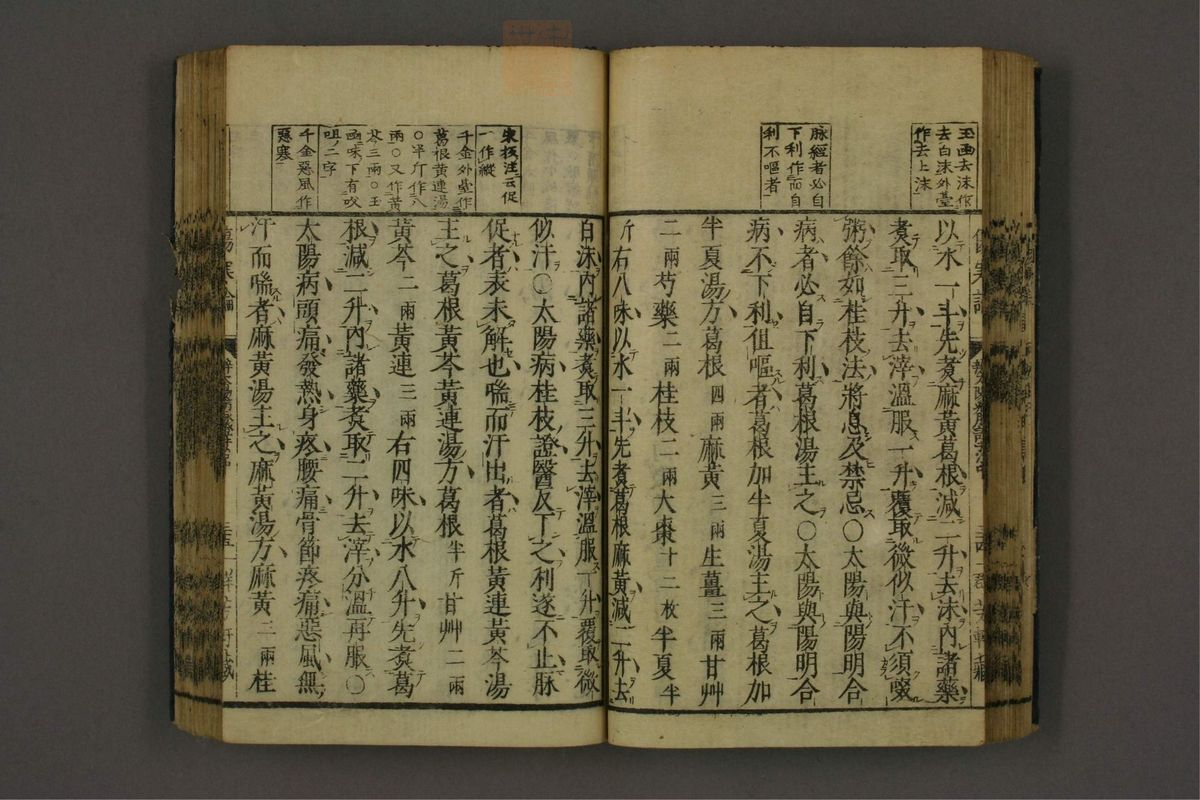 玉函去沫作
去白沫外臺
作去上沫
脉經者必自
下利作而自
利不嘔者
以水一斗先煑麻黃葛根減二升去沫內諸藥
煑取三升去滓溫服一升覆取微似汗不須啜
粥餘如桂枝法將息及禁忌〇太陽與陽明合
病者必自下利葛根湯主之〇太陽與陽明合
病不下利但嘔者葛根加半夏湯主之葛根加
半夏湯方葛根四兩麻黃三兩生薑三兩甘艸
二兩芍藥二兩桂枝二兩大棗十二枚半夏半
斤右八味以水一斗先煑葛根麻黃減二升去
宋板注云促
一作縱
千金外臺作
葛根黃連湯
〇半斤作八
兩〇又作黃
芩三兩〇玉
函味下有㕮
咀二字
千金惡風作
惡寒
白沫內諸藥煑取三升去滓溫服一升覆取微
似汗〇太陽病桂枝證醫反下之利遂不止脉
促者表未解也喘而汗出者葛根黃連黃芩湯
主之葛根黃芩黃連湯方葛根半斤甘艸二兩
黃芩二兩黃連三兩右四味以水八升先煑葛
根減二升內諸藥煑取二升去滓分溫再服〇
太陽病頭痛發熱身疼腰痛骨節疼痛惡風無
汗而喘者麻黃湯主之麻黃湯方麻黃三兩桂